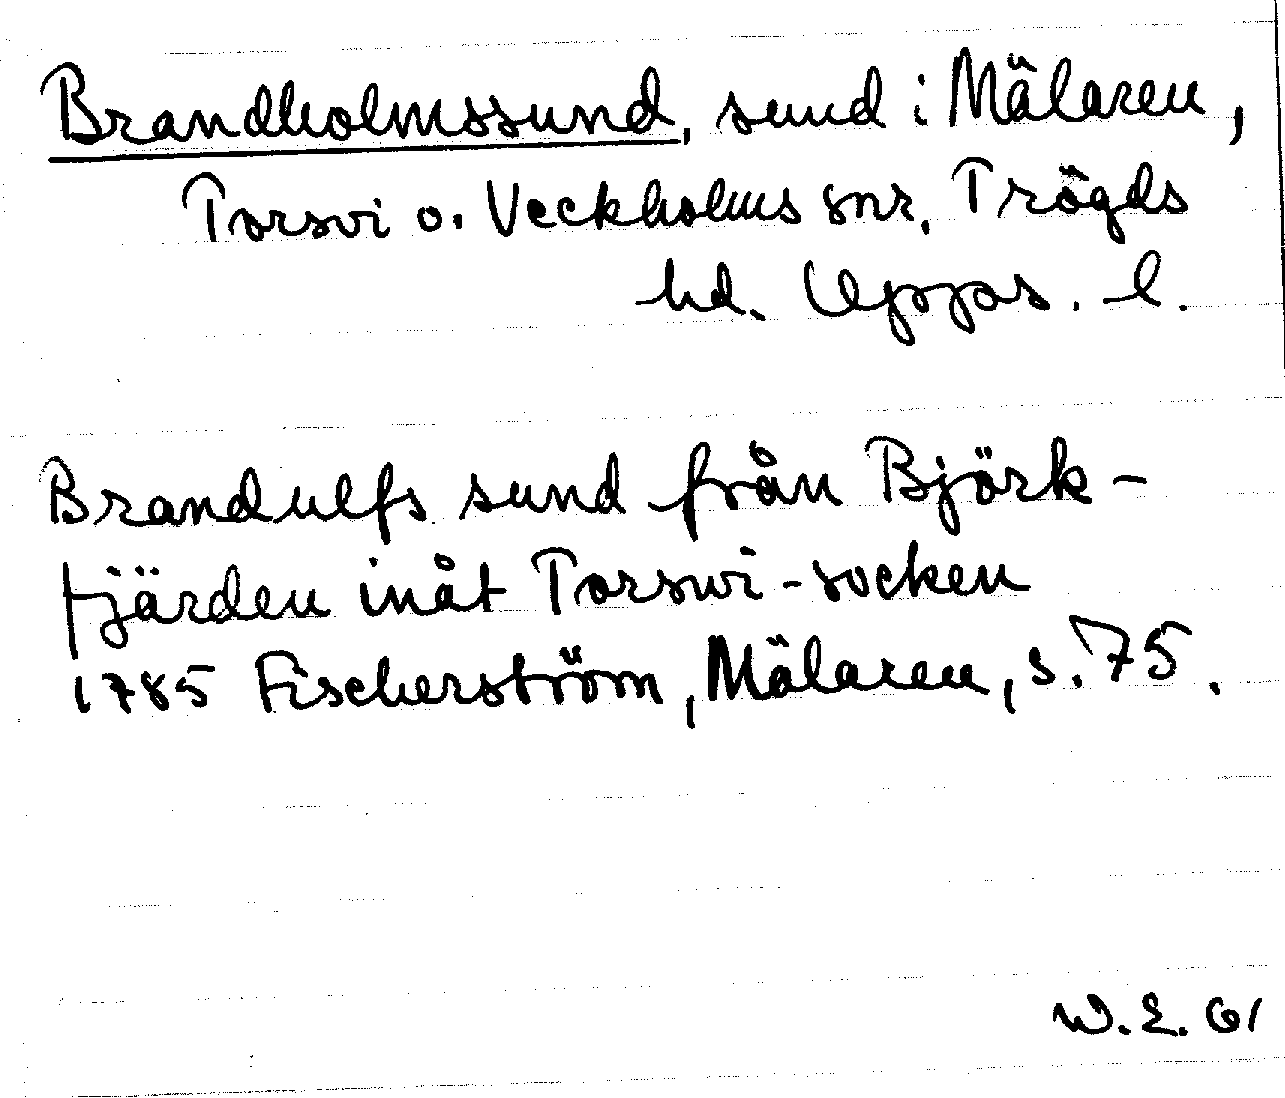 Brandholmssund, sund i Mälaren,
Torsvi o. Veckholms snr, Trögds
hd. Uppas. l.
Brandulfs sund från Björk-
fjärden inåt Torswi-socken
1785 Fischerström, Mälaren, s. 75.
W.E. 61